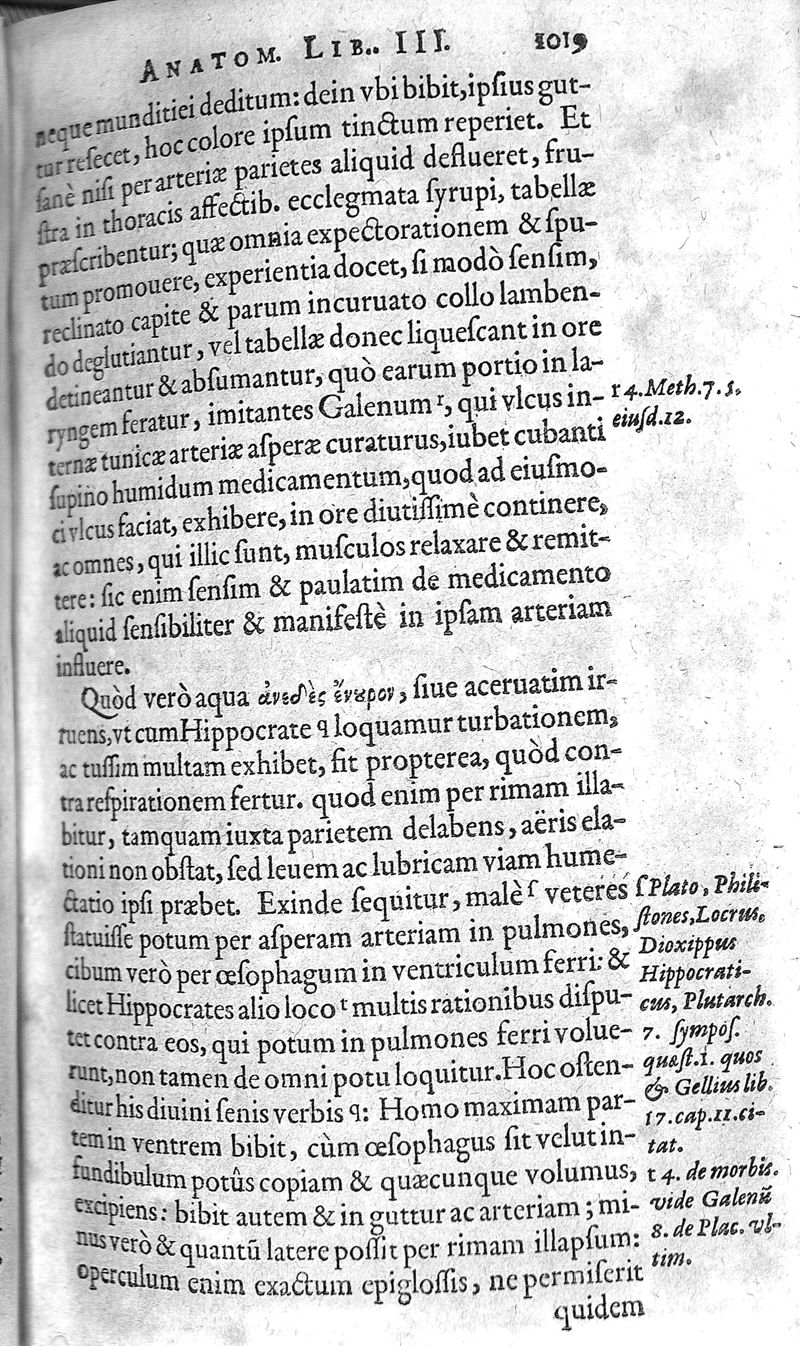 ANATOM. LIB.. III. 1019
neque munditiei deditum: dein vbi bibit, ipſius gut-
tur reſecet, hoc colore ipſum tinctum reperiet. Et
ſanè niſi per arteriæ parietes aliquid deflueret, fru-
ſtra in thoracis affectib. ecclegmata ſyrupi, tabellæ
præſcribentur; quæ omnia expectorationem & ſpu-
tum promouere, experientia docet, ſi modò ſenſim,
reclinato capite & parum incuruato collo lamben-
do deglutiantur, vel tabellæ donec liqueſcant in ore
detineantur & abſumantur, quò earum portio in la-
ryngem feratur, imitantes Galenum r, qui vlcus in-
ternæ tunicæ arteriæ aſperæ curaturus, iubet cubanti
ſupino humidum medicamentum, quod ad eiuſmo-
ci vlcus faciat, exhibere, in ore diutiſſimè continere,
ac omnes, qui illic ſunt, muſculos relaxare & remit-
tere: ſic enim ſenſim & paulatim de medicamento
aliquid ſenſibiliter & manifeſtè in ipſam arteriam
influere.
Quòd verò aqua ſiue aceruatim ir-
ruens, vt cum Hippocrate q loquamur turbationem,
ac tuſſim multam exhibet, fit propterea, quòd con-
tra reſpirationem fertur. quod enim per rimam illa-
bitur, tamquam iuxta parietem delabens, aëris ela-
tioni non obſtat, ſed leuem ac lubricam viam hume-
ctatio ipſi præbet. Exinde ſequitur, malè ſ veteres
ſtatuiſſe potum per aſperam arteriam in pulmones,
cibum verò per œſophagum in ventriculum ferri: &
licet Hippocrates alio loco t multis rationibus diſpu-
tet contra eos, qui potum in pulmones ferri volue-
runt, non tamen de omni potu loquitur. Hoc oſten-
ditur his diuini ſenis verbis q: Homo maximam par-
tem in ventrem bibit, cùm œſophagus ſit velut in-
fundibulum potûs copiam & quæcunque volumus,
excipiens: bibit autem & in guttur ac arteriam; mi-
nus verò & quantũ latere poſſit per rimam illapſum:
operculum enim exactum epigloſſis, ne permiſerit
quidem
r 4. Meth. 7. &
eiuſd. 12.
ſ Plato, Phili-
ſtones, Locrus,
Dioxippus
Hippocrati-
cus, Plutarch.
7. ſympoſ.
quæſt. 1. quos
& Gellius lib.
17. cap. 11. ci-
tat.
t 4. de morbis.
vide Galenũ
8. de Plac. vl-
tim.